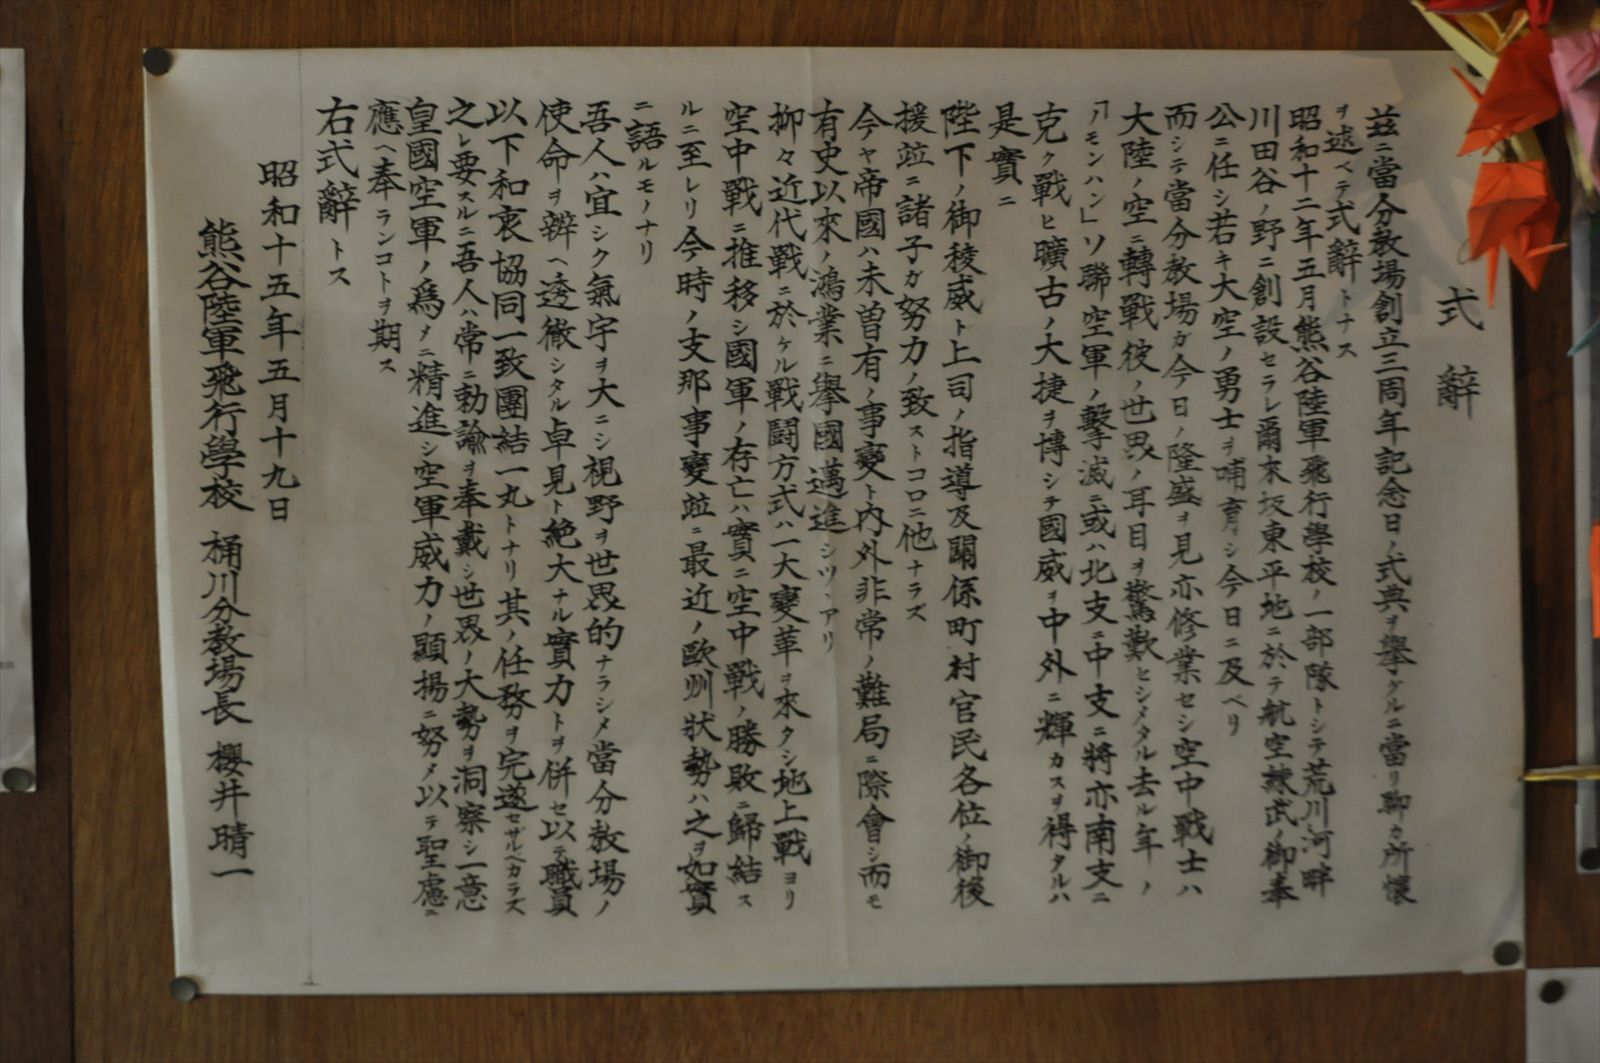 式辭
玆ニ當分教場創立三周年記念日ノ式典ヲ擧グルニ當リ聊カ所懷
ヲ述ベテ式辭トナス
昭和十二年五月熊谷陸軍飛行學校ノ一部隊トシテ荒川河畔
川田谷ノ野ニ創設セラレ爾來坂東平地ニ於テ航空練武ノ御奉
公ニ任シ若キ大空ノ勇士ヲ哺育シ今日ニ及ベリ
而シテ當分教場ガ今日ノ隆盛ヲ見亦修業セシ空中戰士ハ
大陸ノ空ニ轉戰彼ノ世界ノ耳目ヲ驚歎セシメタル去ル年ノ
「ノモンハン」ソ聯空軍ノ擊滅ニ或ハ北支ニ中支ニ將亦南支ニ
克ク戰ヒ曠古ノ大捷ヲ博シテ國威ヲ中外ニ輝カスヲ得タルハ
是實ニ
陛下ノ御稜威ト上司ノ指導及關係町村官民各位ノ御後
援竝ニ諸子ガ努力ノ致ストコロニ他ナラズ
今ヤ帝國ハ未曽有ノ事變ト內外非常ノ難局ニ際會シ而モ
有史以來ノ鴻業ニ擧國邁進シツヽアリ
抑々近代戰ニ於ケル戰闘方式ハ一大變革ヲ來タシ地上戰ヨリ
空中戰ニ推移シ國軍ノ存亡ハ實ニ空中戰ノ勝敗ニ歸結ス
ルニ至レリ今時ノ支那事變竝ニ最近ノ歐州狀勢ハ之ヲ如實
ニ語ルモノナリ
吾人ハ宜シク氣宇ヲ大ニシ視野ヲ世界的ナラシメ當分教場ノ
使命ヲ辨ヘ透徹シタル卓見ト絕大ナル實力トヲ併セ以テ職員
以下和衷協同一致團結一丸トナリ其ノ任務ヲ完遂セザルベカラズ
之レ要スルニ吾人ハ常ニ勅諭ヲ奉戴シ世界ノ大勢ヲ洞察シ一意
皇國空軍ノ爲メニ精進シ空軍威力ノ顯揚ニ努メ以テ聖慮ニ
應ヘ奉ランコトヲ期ス
右式辭トス
昭和十五年五月十九日
熊谷陸軍飛行學校 桶川分教場長 櫻井晴一